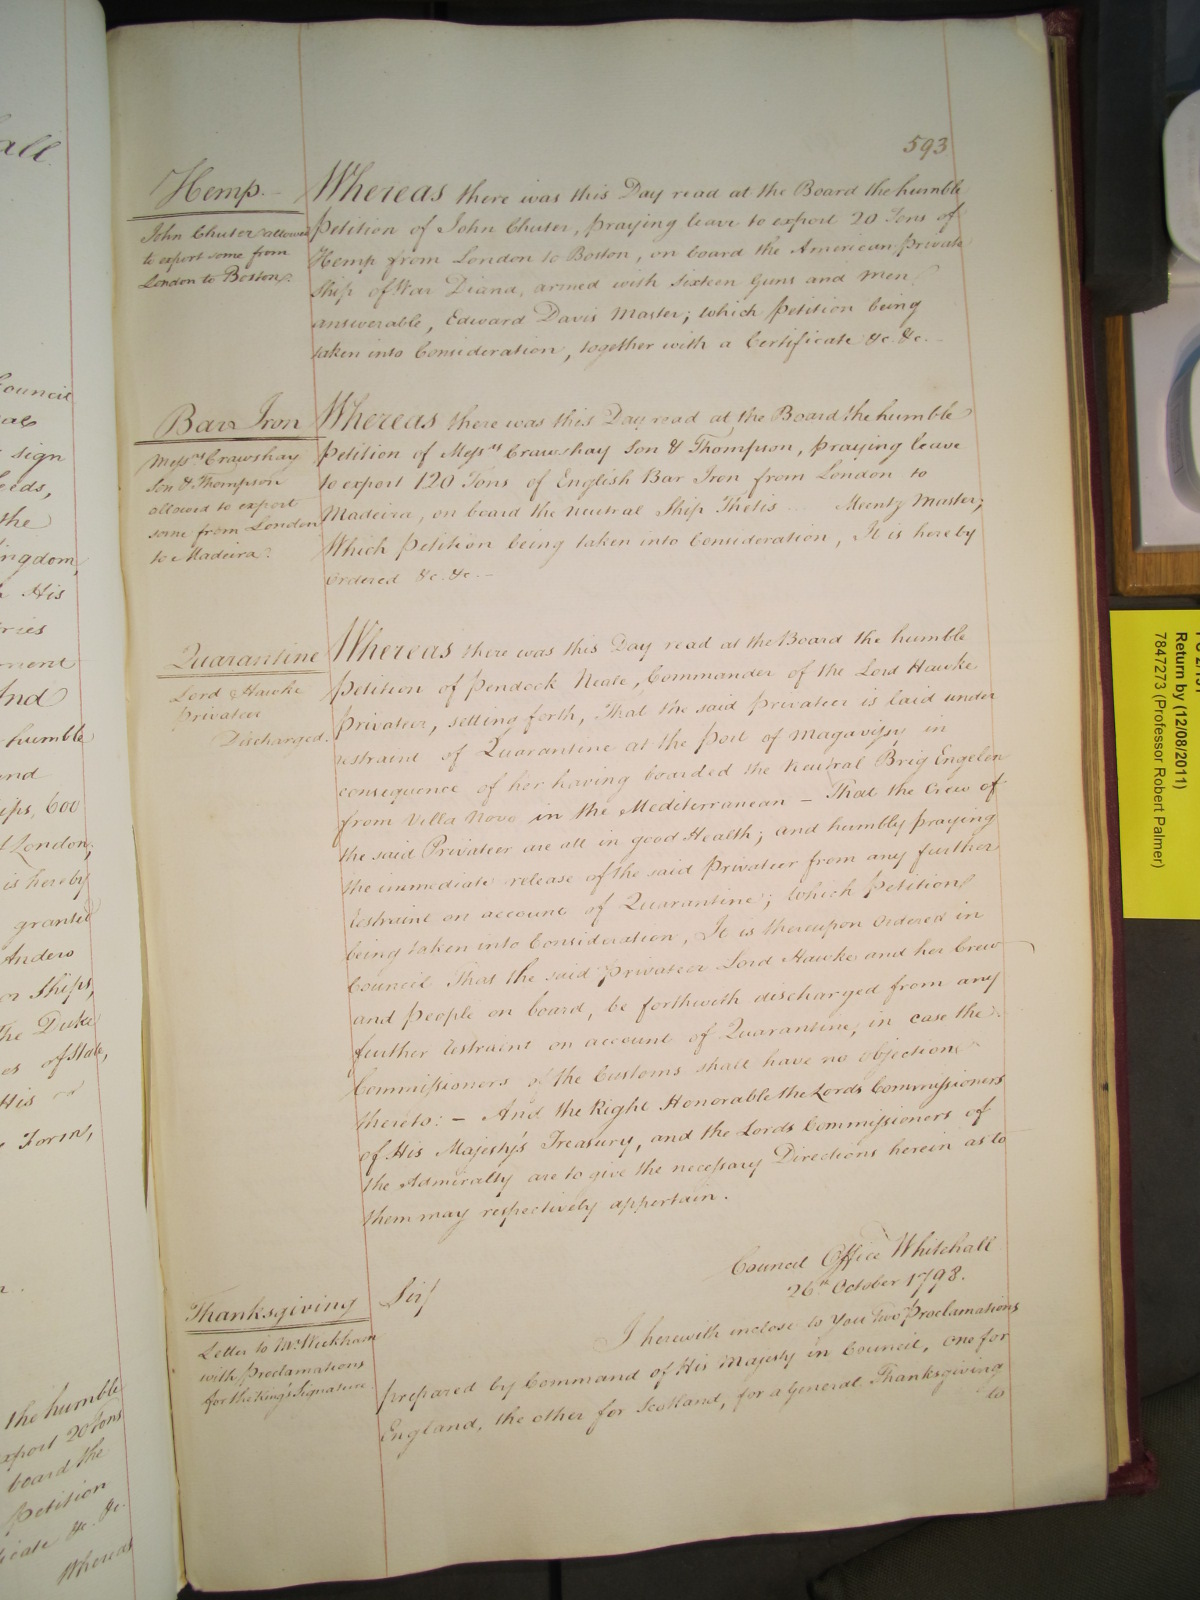 593
Hemp.
John Chuter allowed
to export some from
London to Boston.
Whereas there was this Day read at the Board the humble
Petition of John Chuter, praying leave to export 20 Tons of
Hemp from London to Boston, on board the American private
Ship of War Diana, armed with sixteen Guns and Men
answerable, Edward Davis Master; which Petition being
taken into Consideration, together with a Certificate &c. &c.
Bar Iron
Messrs Crawshay
Son & Thompson
allowed to export
some from London
to Madeira.
Whereas there was this Day read at the Board the humble
Petition of Messrs Crawshay Son & Thompson, praying leave
to export 120 Tons of English Bar Iron from London to
Madeira, on board the Neutral Ship Thetis ... Mentz Master;
Which Petition being taken into Consideration, It is hereby
Ordered &c. &c. -
Quarantine
Lord Hawke
Privateer
Discharged.
Whereas there was this Day read at the Board the humble
Petition of Pendock Neale, Commander of the Lord Hawke
Privateer, setting forth, That the said Privateer is laid under
restraint of Quarantine at the Port of in
consequence of her having boarded the Neutral Brig Engelen
from Villa Nova in the Mediterranean - That the Crew of
the said Privateer are all in good Health; and humbly praying
the immediate release of the said Privateer from any further
restraint on account of Quarantine; Which Petition
being taken into Consideration, It is thereupon Ordered in
Council That the said Privateer Lord Hawke and her Crew
and People on board, be forthwith discharged from any
further restraint on account of Quarantine, in case the
Commissioners of the Customs shall have no objection
thereto: - And the Right Honorable the Lords Commissioners
of His Majesty's Treasury, and the Lords Commissioners of
the Admiralty are to give the necessary Directions herein as to
them may respectively appertain.
Council Office Whitehall
26th October 1798.
Thanksgiving
Letter to Mr Wickham
with Proclamations
for the King's Signature
Sir/
I herewith inclose to You two Proclamations
prepared by Command of His Majesty in Council, one for
England, the other for Scotland, for a General Thanksgiving
to
all
Council
sign
the
ingdom,
His
ries
ment
And
humble
and
600
London;
is hereby
granted
Anders
or Ships,
the Duke
es of State,
His
Form,
the humble
export 20 Tons
board the
Petition
icate &c. &c.
Whereas
Return by (12/08/2011)
7847273 (Professor Robert Palmer)